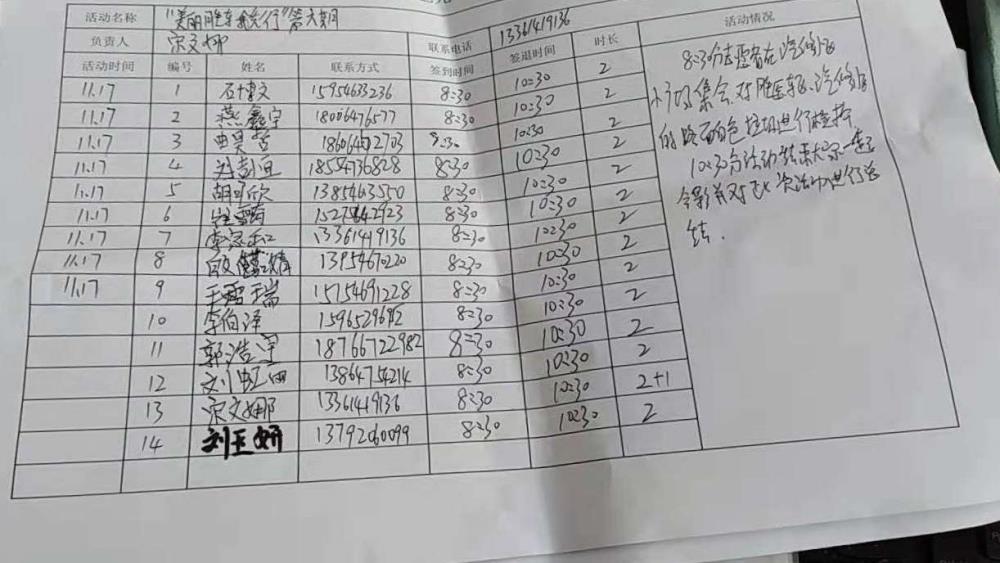 活动名称 "美丽胜东 徒行"第六期
负责人 宋文娜 联系电话 13361419136
活动时间 编号 姓名 联系方式 签到时间 签退时间 时长 活动情况
11.17 1 石博文 15954633236 8:30 10:30 2
11.17 2 燕鑫宇 18006476577 8:30 10:30 2
11.17 3 曲昊哲 18606402703 8:30 10:30 2
11.17 4 刘彭宜 18554736828 8:30 10:30 2
11.17 5 胡可欣 1385463550 8:30 10:30 2
11.17 6 8:30 10:30 2
11.17 7 13361419136 8:30 10:30 2
11.17 8 13954670220 8:30 10:30 2
11.17 9 15154691228 8:30 10:30 2
10 李伯泽 8:30 10:30 2
11 郭浩宇 18766722982 8:30 10:30 2
12 刘虹 13864754214 8:30 10:30 2
13 宋文娜 13361419136 8:30 10:30 2+1
14 刘玉妍 13792060099 8:30 10:30 2
8:30分志愿者在汽修小区
小广场集合,对胜医路、汽修小区
的路面白色垃圾进行检拾,
10:30分活动结束大家一起
合影并对此次活动进行总
结.